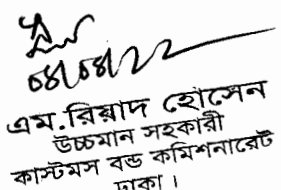 ০৪/০৪/২২
এম. রিয়াদ হোসেন
উচ্চমান সহকারী
কাস্টমস বন্ড কমিশনারেট
ঢাকা।